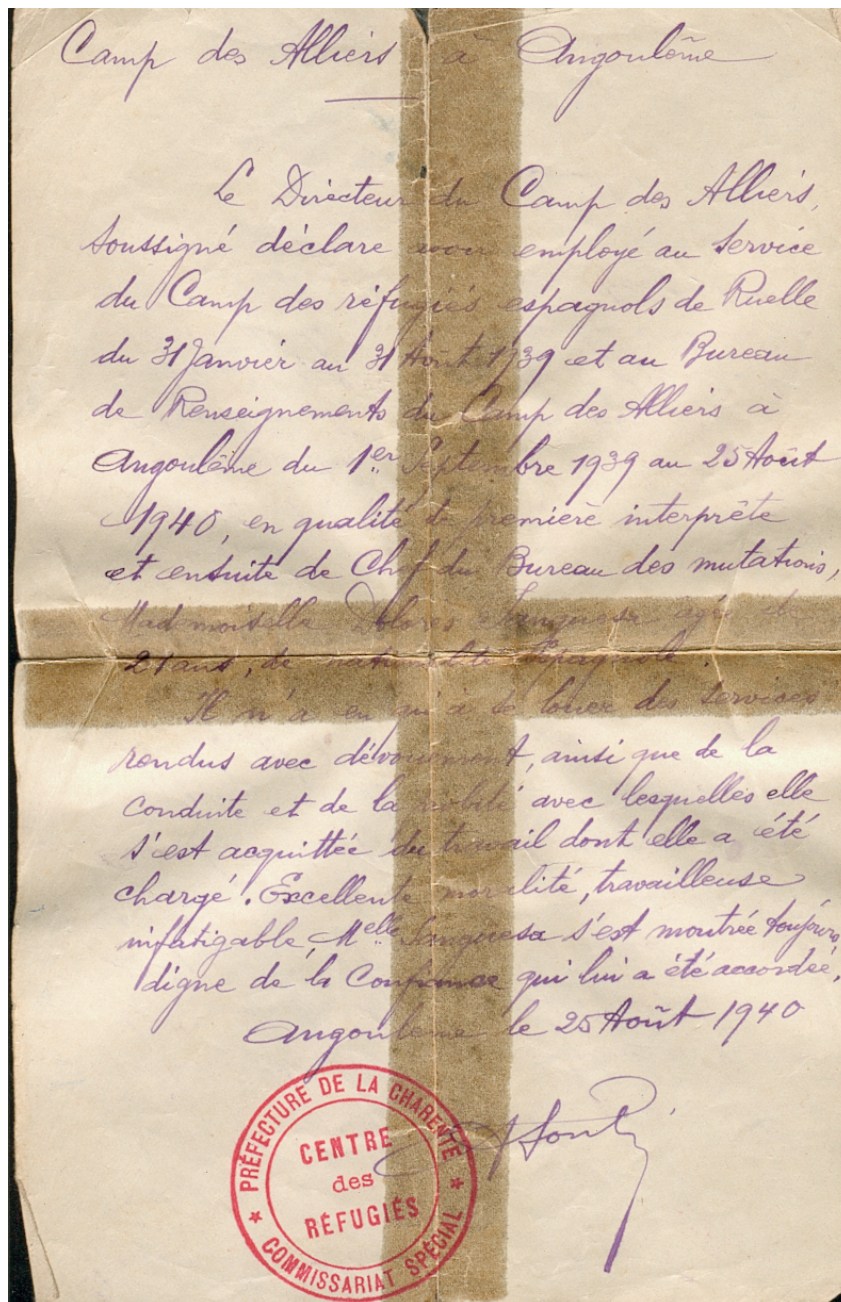 Camp des Alliers à Angoulême
Le Directeur du Camp des Alliers,
soussigné déclare avoir employé au service
du Camp des réfugiés espagnols de Ruelle
du 31 Janvier au 31 Août 1939 et au Bureau
de Renseignements du Camp des Alliers à
Angoulême du 1er Septembre 1939 au 25 Août
1940, en qualité de première interprète
et ensuite de Chef du Bureau des mutations,
Mademoiselle Dolores Sanguesa agée de
21 ans, de nationalité Espagnole.
Il n'a eu qu'à se louer des services
rendus avec dévouement, ainsi que de la
conduite et de la probité avec lesquelles elle
s'est acquittée du travail dont elle a été
chargé. Excellente moralité, travailleuse
infatigable, Melle Sanguesa s'est montrée toujours
digne de la Confiance qui lui a été accordée.
Angoulême le 25 Août 1940
PRÉFECTURE DE LA CHARENTE
CENTRE
des
RÉFUGIÉS
COMMISSARIAT SPÉCIAL